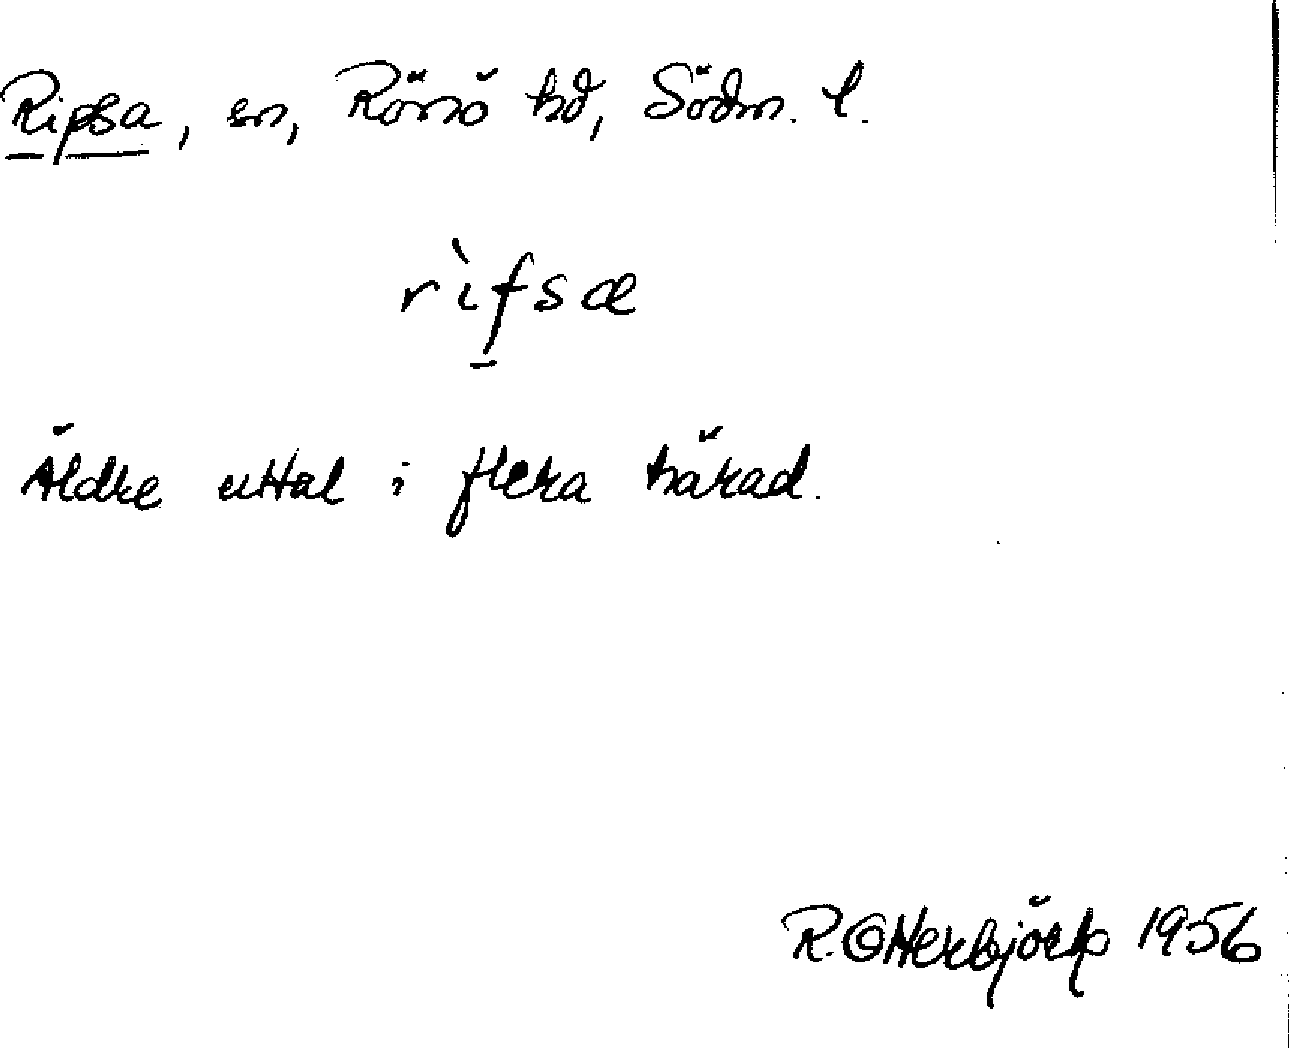 Ripsa, sn, Rönö hd, Södm. l.
rìfsæ
Äldre uttal i flera härad.
R. Otterbjörk 1956